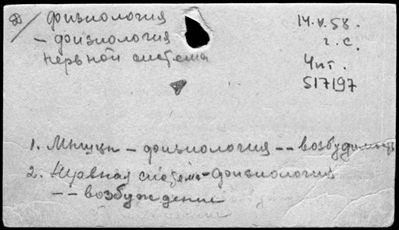 Ф/ физиология
– физиология
нервной системы
14.V.58.
г. с.
Чит.
517197
1. Мышцы – физиология – – возбудимость
2. Нервная система – физиология
– – возбуждение